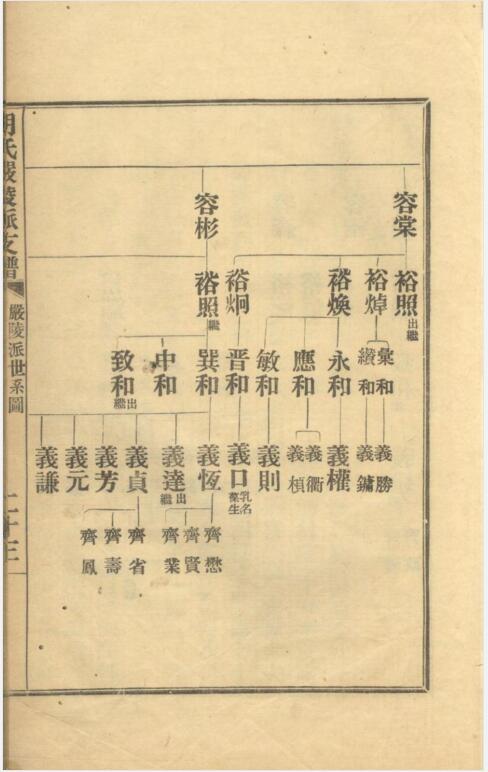 容棠
容彬
裕照出繼
裕焯
裕煥
裕炯
裕照繼
彙和
纘和
永和
應和
敏和
晋和
巽和
中和
致和出繼
義勝
義鏞
義權
義衢
義楨
義則
義口乳名藥生
義恆
義達出繼
義貞
義芳
義元
義謙
齊懋
齊賢
齊業
齊省
齊壽
齊鳳
胡氏嚴陵派支譜
嚴陵派世系圖
二十三